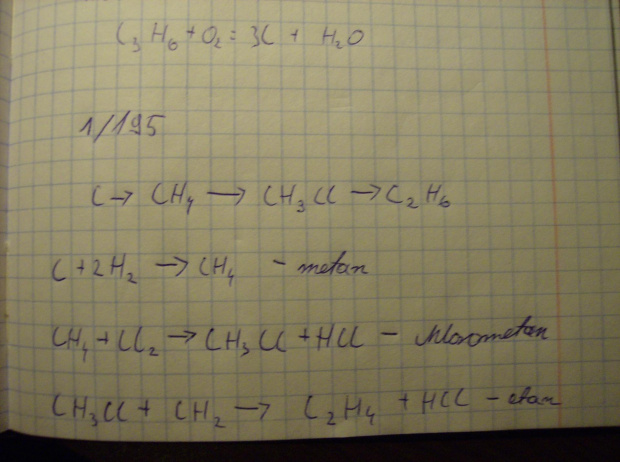 C₃H₆ + O₂ = 3C + H₂O
1/195
C → CH₄ → CH₃Cl → C₂H₆
C + 2H₂ → CH₄ - metan
CH₄ + Cl₂ → CH₃Cl + HCl - chlorometan
CH₃Cl + CH₂ → C₂H₄ + HCl - etan